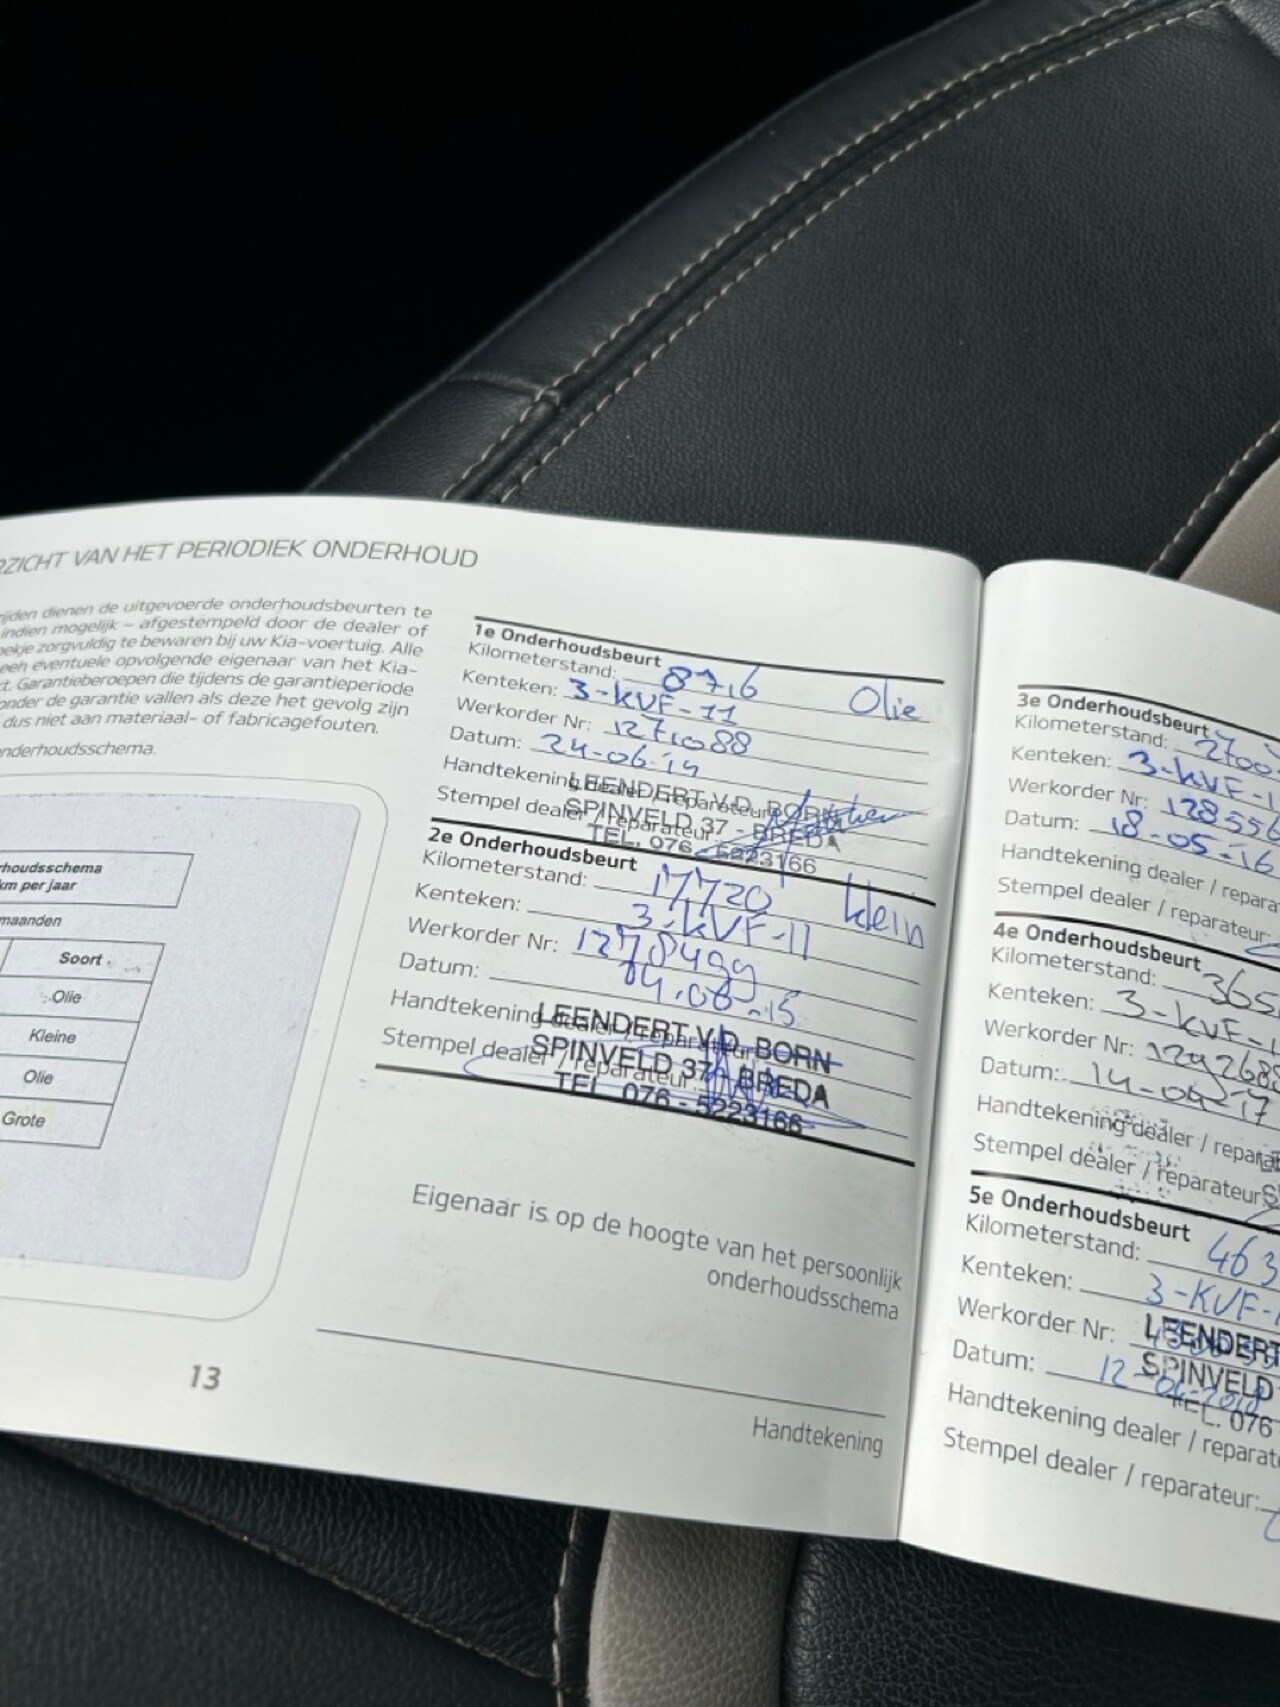 RZICHT VAN HET PERIODIEK ONDERHOUD
rijden dienen de uitgevoerde onderhoudsbeurten te
indien mogelijk – afgestempeld door de dealer of
ekje zorgvuldig te bewaren bij uw Kia-voertuig. Alle
een eventuele opvolgende eigenaar van het Kia-
t. Garantieberoepen die tijdens de garantieperiode
onder de garantie vallen als deze het gevolg zijn
dus niet aan materiaal- of fabricagefouten.
nderhoudsschema.
rhoudsschema
km per jaar
maanden
Soort
Olie
Kleine
Olie
Grote
13
1e Onderhoudsbeurt
Kilometerstand: 8716 Olie
Kenteken: 3-KVF-11
Werkorder Nr: 1271088
Datum: 24-06-14
Handtekening dealer / reparateur
Stempel dealer / reparateur
LEENDERT V.D. BORN
SPINVELD 37 - BREDA
TEL. 076 - 5223166
2e Onderhoudsbeurt
Kilometerstand: 17720 klein
Kenteken: 3-KVF-11
Werkorder Nr: 1278499
Datum: 04.06-15
Handtekening dealer / reparateur
Stempel dealer / reparateur
LEENDERT V.D. BORN
SPINVELD 37 - BREDA
TEL. 076 - 5223166
Eigenaar is op de hoogte van het persoonlijk
onderhoudsschema
Handtekening
3e Onderhoudsbeurt
Kilometerstand: 2700
Kenteken: 3-KVF-1
Werkorder Nr: 128556
Datum: 18-05-16
Handtekening dealer / repara
Stempel dealer / reparateur:
4e Onderhoudsbeurt
Kilometerstand: 365
Kenteken: 3-KVF-1
Werkorder Nr: 129268
Datum: 14-04-17
Handtekening dealer / reparat
Stempel dealer / reparateur
5e Onderhoudsbeurt
Kilometerstand: 463
Kenteken: 3-KVF-1
Werkorder Nr:
Datum: 12-04-2018
LEENDERT
SPINVELD
TEL. 076
Handtekening dealer / reparat
Stempel dealer / reparateur: